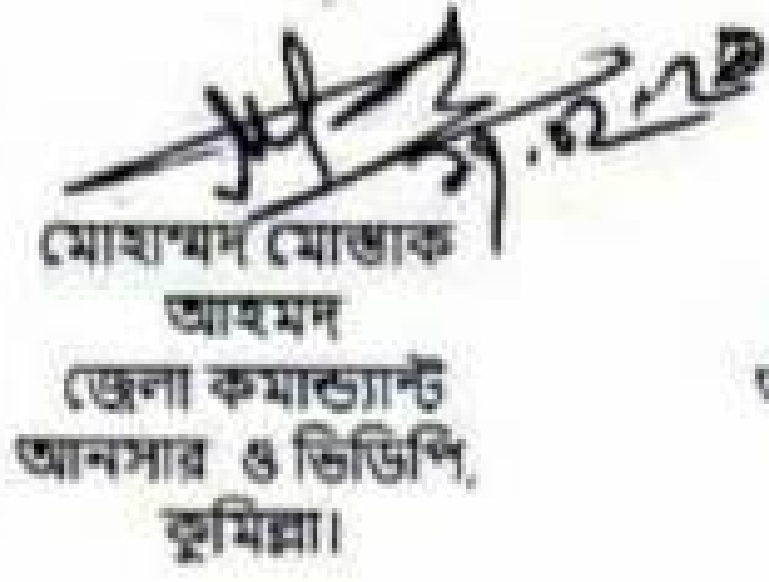 মোহাম্মদ মোস্তাক
আহমদ
জেলা কমান্ড্যান্ট
আনসার ও ভিডিপি,
কুমিল্লা।